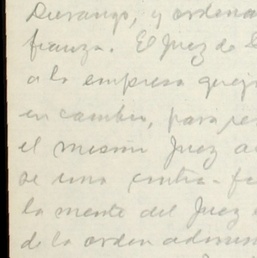 Durango, y ordena
fianza. El Juez de
a la empresa quej
en cambio, para re
el mismo Juez a
se una contra-f
la mente del Juez
de la orden admin